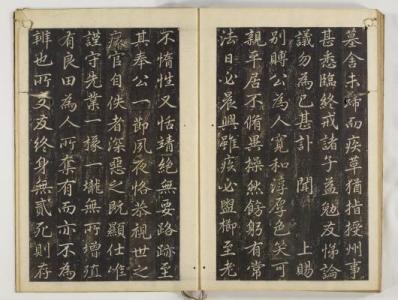 墓舍未歸而疾革猶指授州事
甚悉臨終戒諸子益勉友悌論
議勿為已甚訃 聞 上賜
別賻公為人寬和淳厚色笑可
親平居不脩異操然飭躬有常
法日必晨興雖疾必盥櫛至老
不惰性又恬靖絕無要路跡至
其奉公一節夙夜恪恭視世之
官自佚者深惡之既顯仕唯
謹守先業一椽一壠無所增殖
有良田為人所奪有而亦不為
辨也所交友終身無貳死則存